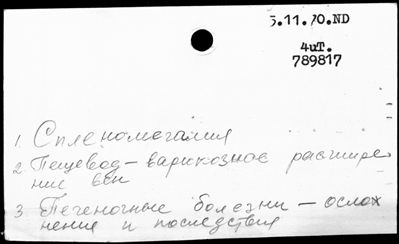 5.11.70.ND
4uT.
789817
1. Спленомегалия
2. Пищевод – варикозное расшире-
ние вен
3. Печеночные болезни – ослож
нения и последствия